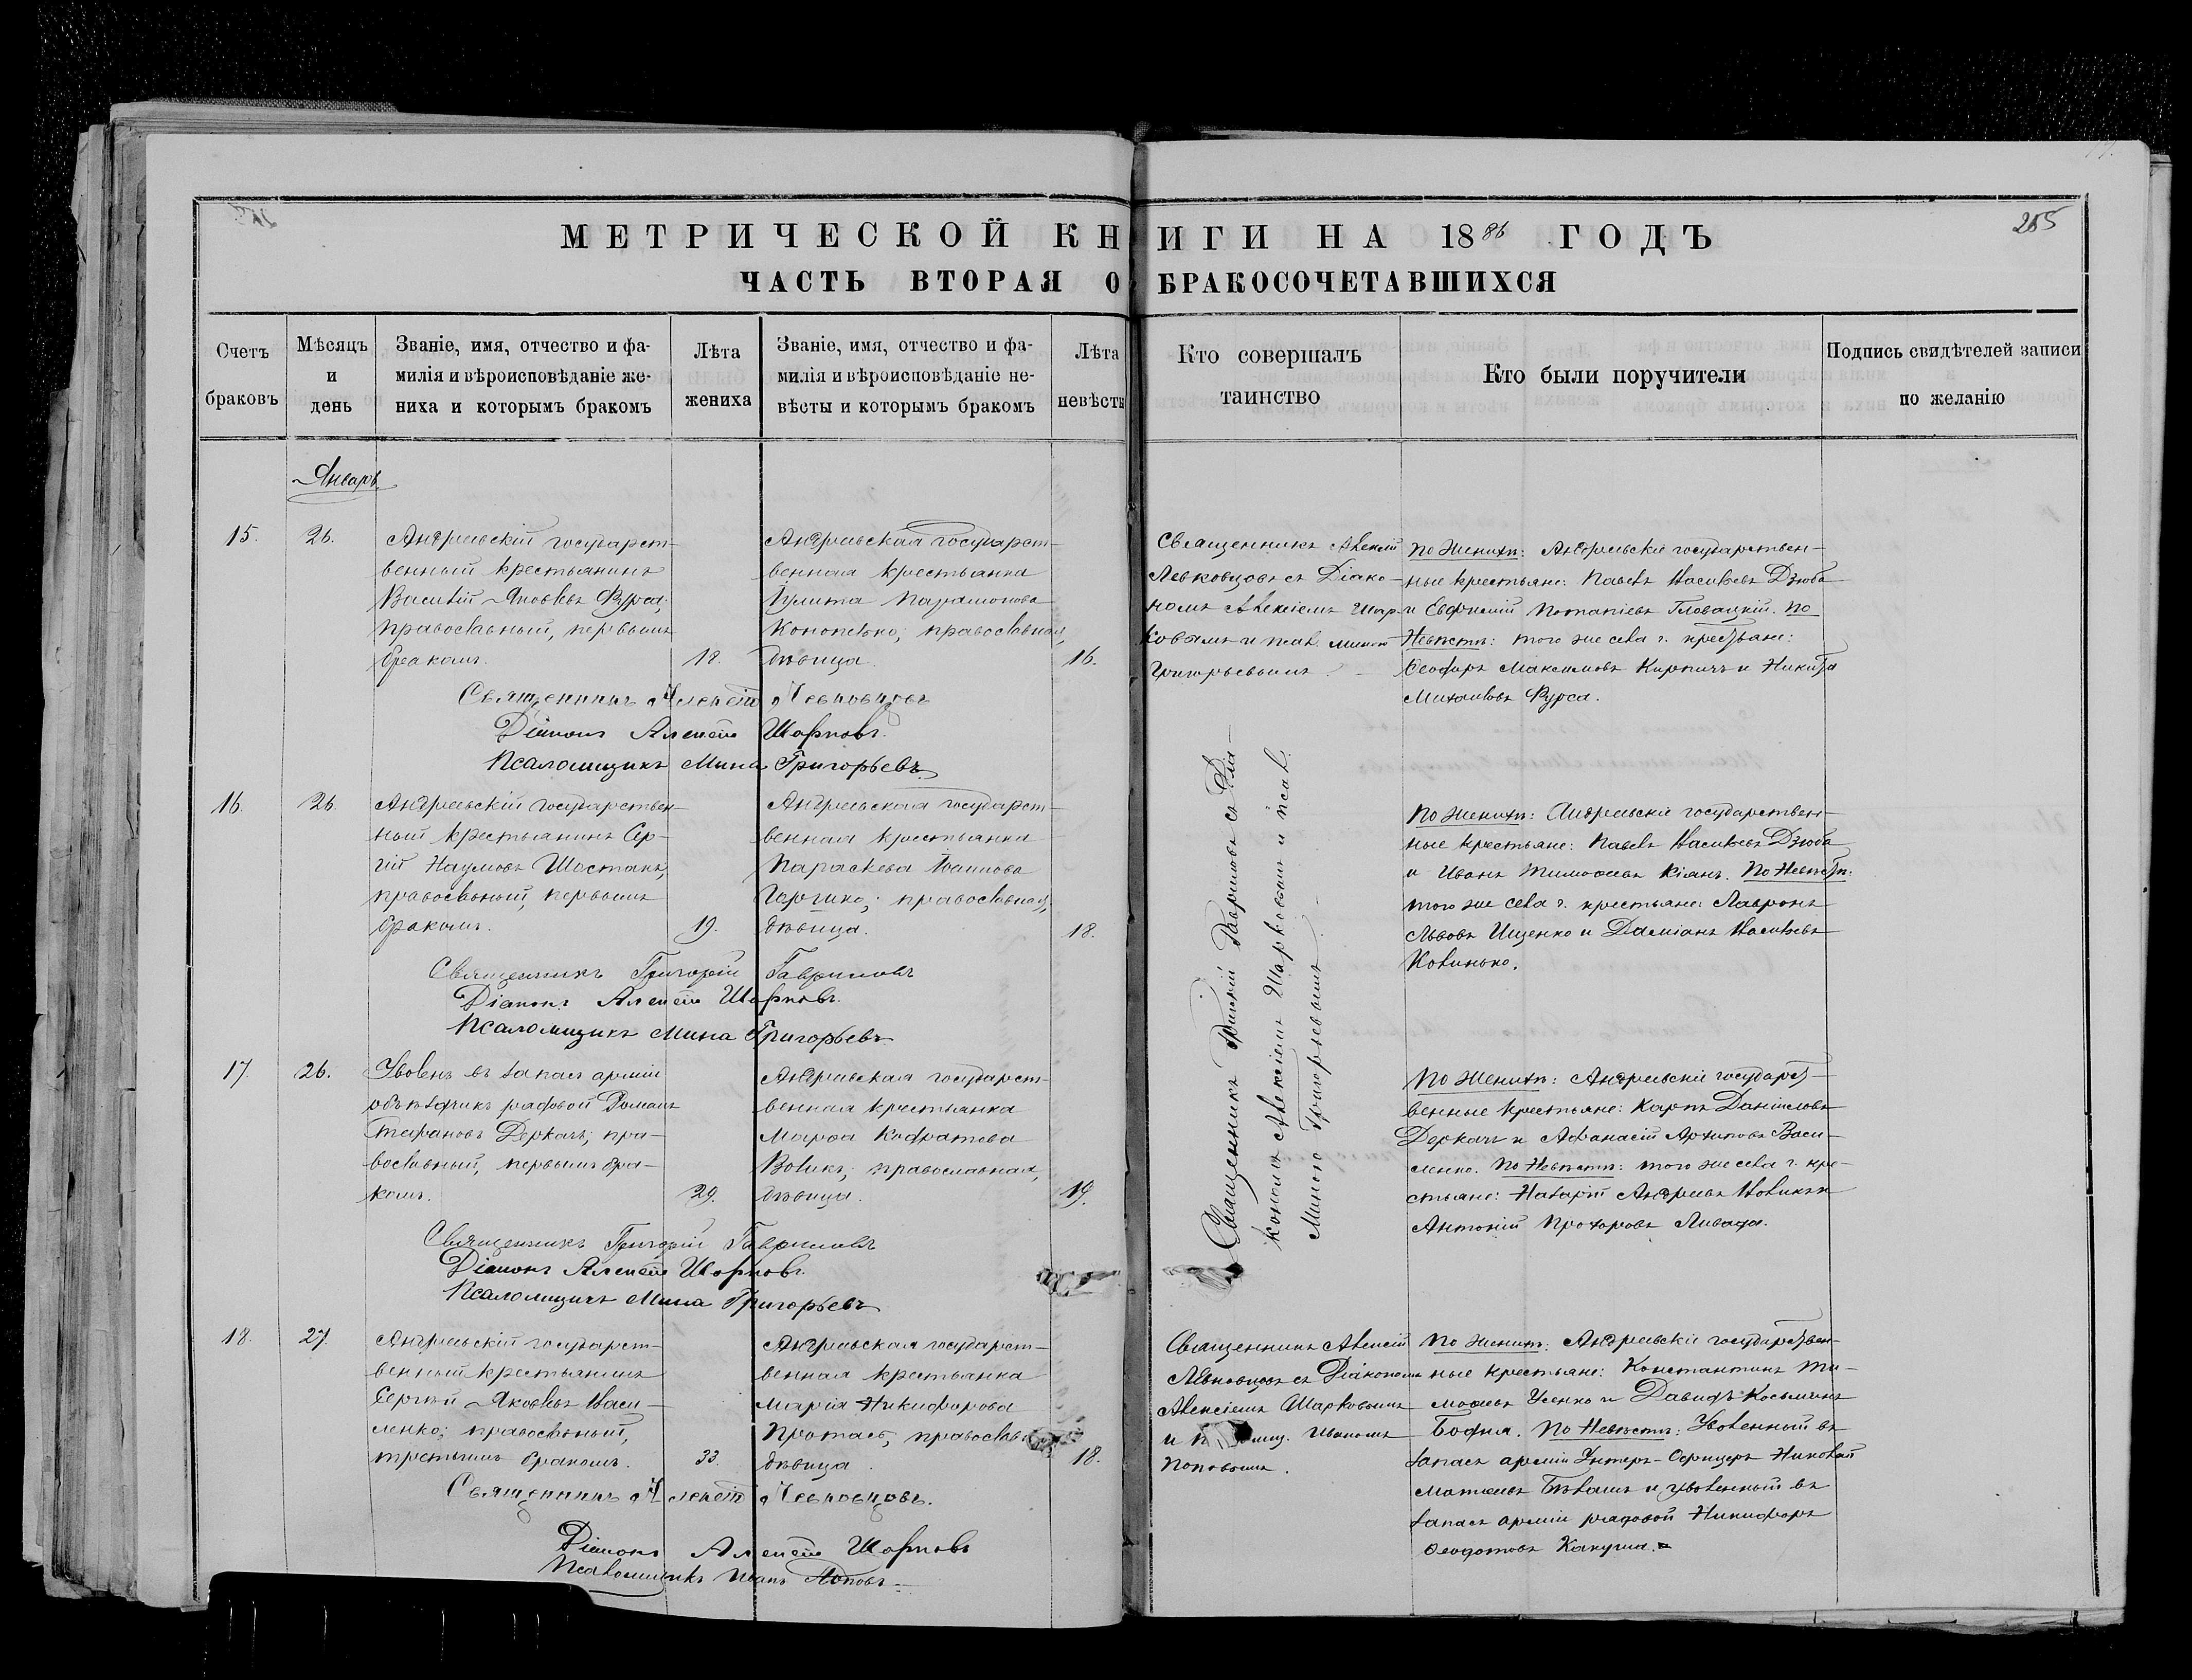 МЕТРИЧЕСКОЙ КНИГИ НА 1886 ГОДЪ
265
ЧАСТЬ ВТОРАЯ О БРАКОСОЧЕТАВШИХСЯ
Счетъ браковъ
Мѣсяцъ и день
Званіе, имя, отчество и фа-
милія и вѣроисповѣданіе же-
ниха и которымъ бракомъ
Лѣта жениха
Званіе, имя, отчество и фа-
милія и вѣроисповѣданіе не-
вѣсты и которымъ бракомъ
Лѣта невѣсты
Кто совершалъ
таинство
Кто были поручители
Подпись свидѣтелей записи
по желанію
Январь
15.
26.
Андреевскій государст-
венный крестьянинъ
Василій Яковлевъ Фурса,
православный, первымъ
бракомъ.
18.
Андреевская государст-
венная крестьянка
Іулита Парамонова
Конопелько, православная,
дѣвица.
16.
Священникъ Алексій
Левковцовъ съ Діако-
номъ Алексіемъ Шар-
ковымъ и псал. Миною
Григорьевымъ.
По женихѣ: Андреевскіе государствен-
ные крестьяне: Павелъ Васильевъ Дзюба
и Евфимій Потапіевъ Гловацкій. По
Невѣстѣ: того же села г. крестьяне:
Ѳеодоръ Максимовъ Кирпичъ и Никита
Михаиловъ Фурса.
Священникъ Алексій Левковцовъ
Діаконъ Алексій Шарковъ.
Псаломщикъ Мина Григорьевъ
16.
26.
Андреевскій государствен-
ный крестьянинъ Сер-
гій Наумовъ Шостакъ,
православный, первымъ
бракомъ.
19.
Андреевская государст-
венная крестьянка
Параскева Іоаннова
православная,
дѣвица.
18.
Священникъ Григорій Гавриловъ съ Діа-
кономъ Алексіемъ Шарковымъ и псал.
Миною Григорьевымъ.
По женихѣ: Андреевскіе государствен-
ные крестьяне: Павелъ Васильевъ Дзюба
и Иванъ Тимоѳеевъ Кіянъ. По Невѣстѣ:
того же села г. крестьяне: Лавронъ
Львовъ Ищенко и Даміанъ Васильевъ
Ковинько.
Священникъ Григорій Гавриловъ
Діаконъ Алексій Шарковъ.
Псаломщикъ Мина Григорьевъ
17.
26.
Уволенъ въ запасъ арміи
объѣздчикъ рядовой Романъ
Деркачъ, пра-
вославный, первымъ бра-
комъ.
29.
Андреевская государст-
венная крестьянка
Марѳа Кодратова
Воликъ, православная,
дѣвица.
19.
По женихѣ: Андреевскіе государст-
венные крестьяне: Карпъ Даніиловъ
Деркачъ и Афанасій Архиповъ Васи-
ленко. По Невѣстѣ: того же села г. кре-
стьяне: Назарій Андреевъ Новикъ и
Антоній Прохоровъ Ливада.
Священникъ Григорій Гавриловъ
Діаконъ Алексій Шарковъ.
Псаломщикъ Мина Григорьевъ
18.
27.
Андреевскій государст-
венный крестьянинъ
Сергій Яковлевъ Васи-
ленко, православный,
третьимъ бракомъ.
33.
Андреевская государст-
венная крестьянка
Марія Никифорова
Протасъ, православ
дѣвица.
18.
Священникъ Алексій
Левковцовъ съ Діакономъ
Алексіемъ Шарковымъ
и Иваномъ
Поповымъ.
По женихѣ: Андреевскіе государствен-
ные крестьяне: Константинъ Ти-
моѳеевъ Усенко и Давидъ Косьминъ
По Невѣстѣ: Уволенный въ
запасъ арміи Унтеръ-Офицеръ Николай
Матвеевъ и уволенный въ
запасъ арміи рядовой Никифоръ
Ѳеодотовъ Какуша.
Священникъ Алексій Левковцовъ.
Діаконъ Алексій Шарковъ
Псаломщикъ Иванъ Поповъ